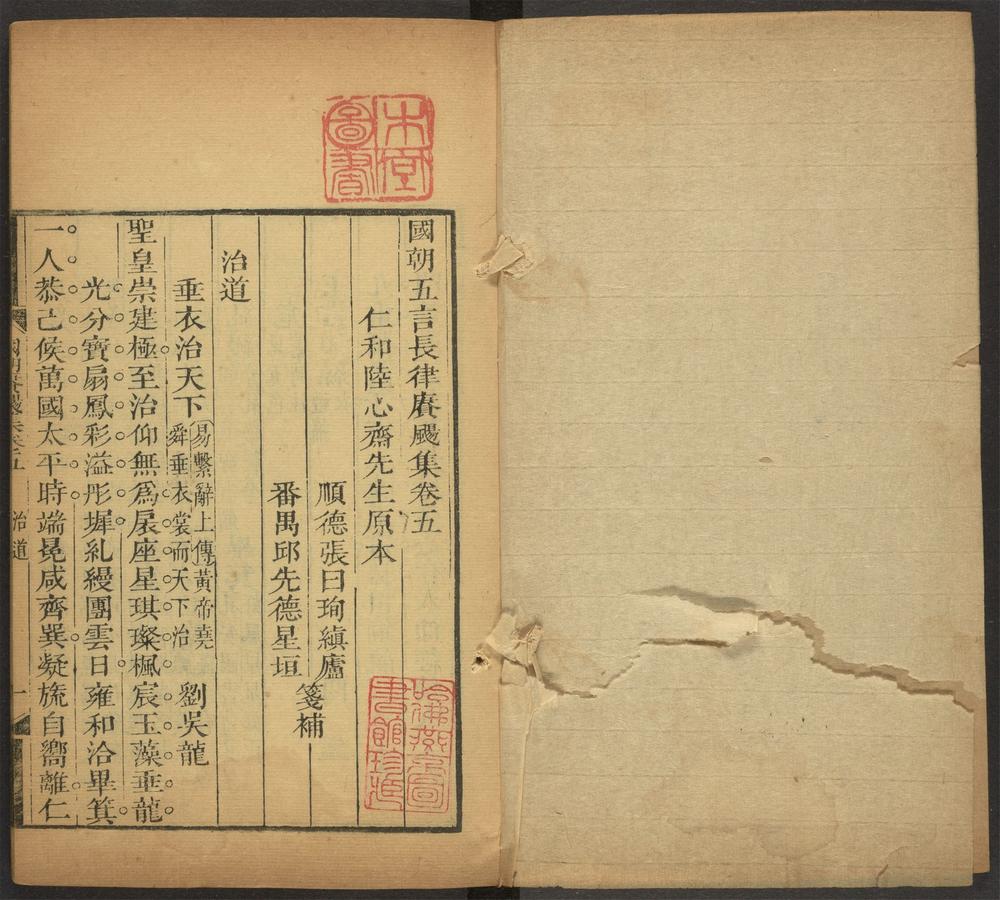 國朝五言長律賡颺集卷五
仁和陸心齋先生原本
順德張日珣縝廬
番禺邱先德星垣
箋補
治道
垂衣治天下
易繫辭上傳黃帝堯
舜垂衣裳而天下治
劉吳龍
聖皇崇建極至治仰無爲扆座星琪璨楓宸玉藻垂龍
光分寶扇鳳彩溢彤墀糺縵團雲日雍和洽畢箕
一人恭己候萬國太平時端冕咸齊巽凝旒自嚮離仁
治道
一
圖書
哈佛燕京圖
書館珍藏